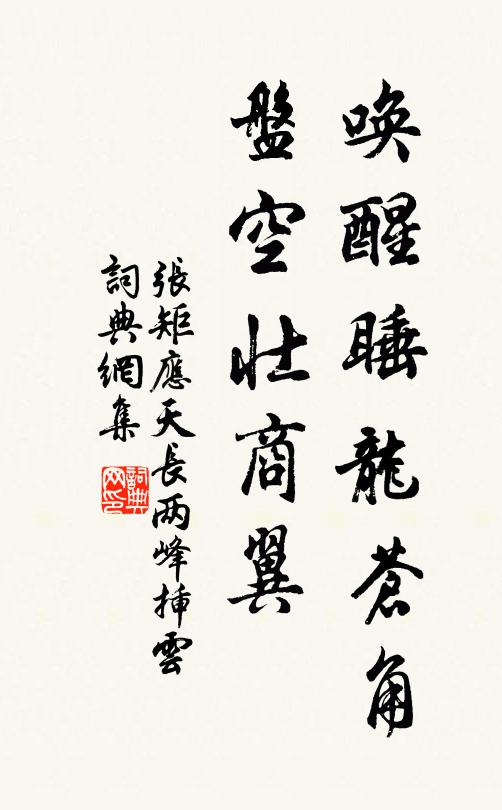 喚醒睡龍蒼角
盤空壯商翼
張矩應天長两峰挿雲
詞典網集
詞典网印